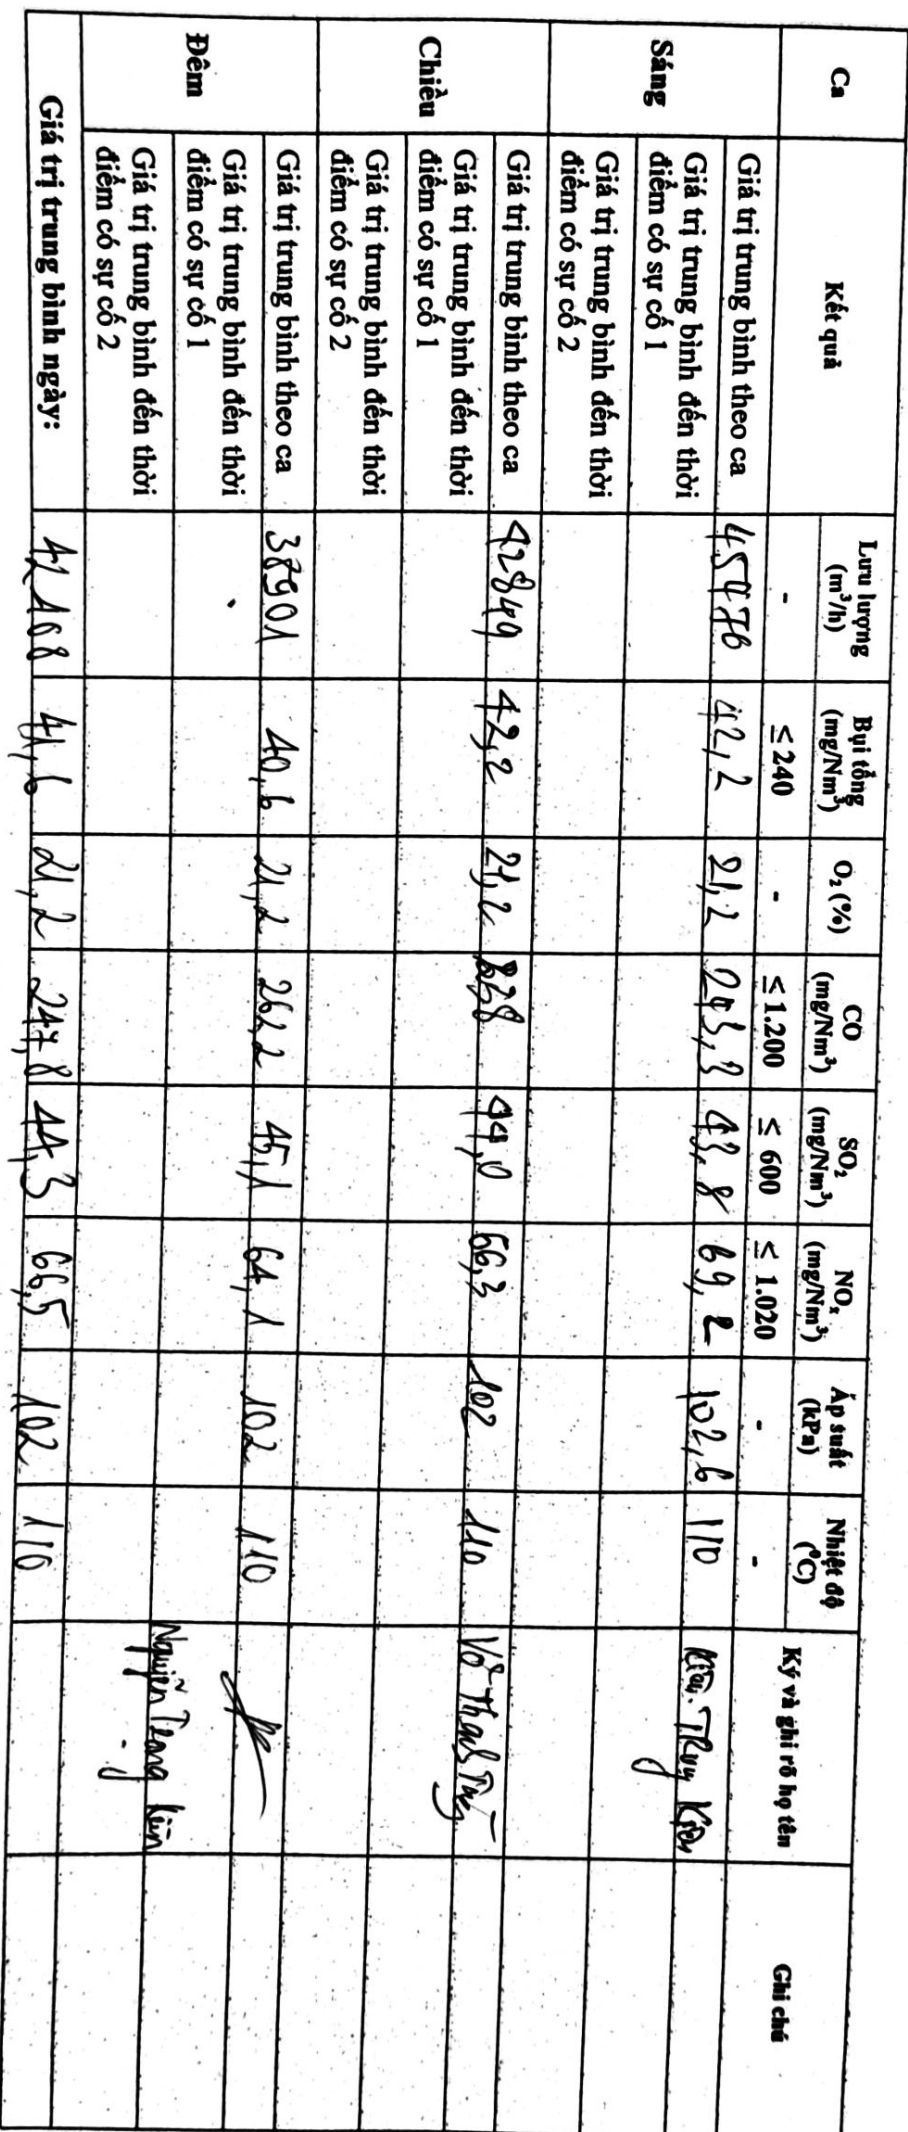 Ca Kết quả Lưu lượng (m³/h) Bụi tổng (mg/Nm³) O₂ (%) CO (mg/Nm³) SO₂ (mg/Nm³) NOₓ (mg/Nm³) Áp suất (kPa) Nhiệt độ (°C) Ký và ghi rõ họ tên Ghi chú
- ≤ 240 - ≤ 1.200 ≤ 600 ≤ 1.020 - -
Sáng
Giá trị trung bình theo ca 42,2 21,2 243,3 43,8 69,2 102,6 110
Giá trị trung bình đến thời
điểm có sự cố 1
Giá trị trung bình đến thời
điểm có sự cố 2
Chiều
Giá trị trung bình theo ca 42849 42,2 21,2 44,0 66,3 102 110 Võ Thanh
Giá trị trung bình đến thời
điểm có sự cố 1
Giá trị trung bình đến thời
điểm có sự cố 2
Đêm
Giá trị trung bình theo ca 38901 40,6 21,2 262,2 45,1 64,1 102 110
Giá trị trung bình đến thời
điểm có sự cố 1
Giá trị trung bình đến thời
điểm có sự cố 2
Nguyễn
Giá trị trung bình ngày: 42108 41,6 21,2 247,8 44,3 66,5 102 110